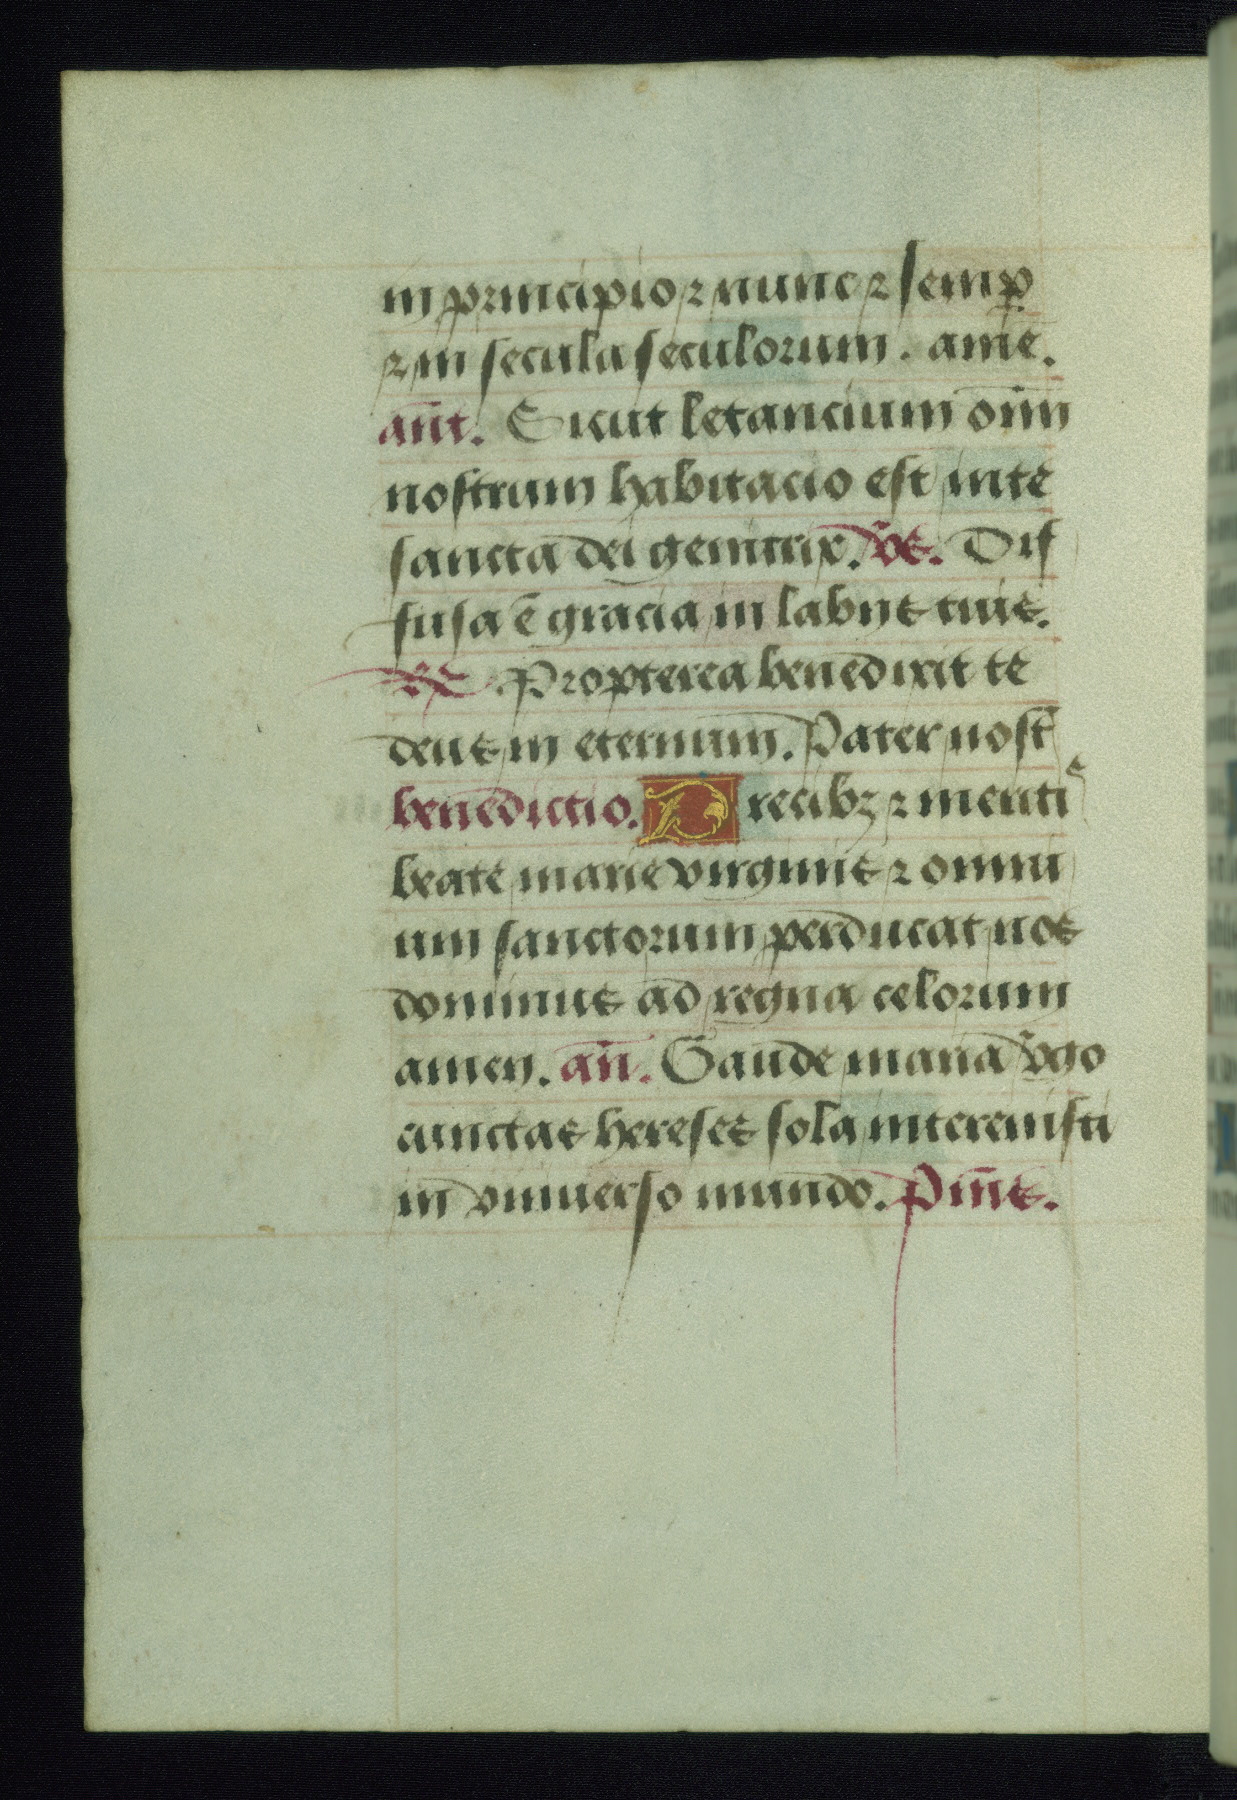 in principio ⁊ nunc ⁊ semp̱
⁊ in secula seculorum. amē.
an̄t. Sicut letancium om̄n
nostrum habitacio est in te
sancta dei genitrix. v̄s. Dif
fusa ē gracia in labijs tuis.
Propterea benedixit te
deus in eternum. Pater nost̄
benedictio. Precibꝫ ⁊ meritis
beate marie virginis ⁊ omni
um sanctorum perducat nos
dominus ad regna celorum
amen. an̄. Gaude maria v̄go
cunctas hereses sola interemisti
in vniuerso mundo. Psm̄s.